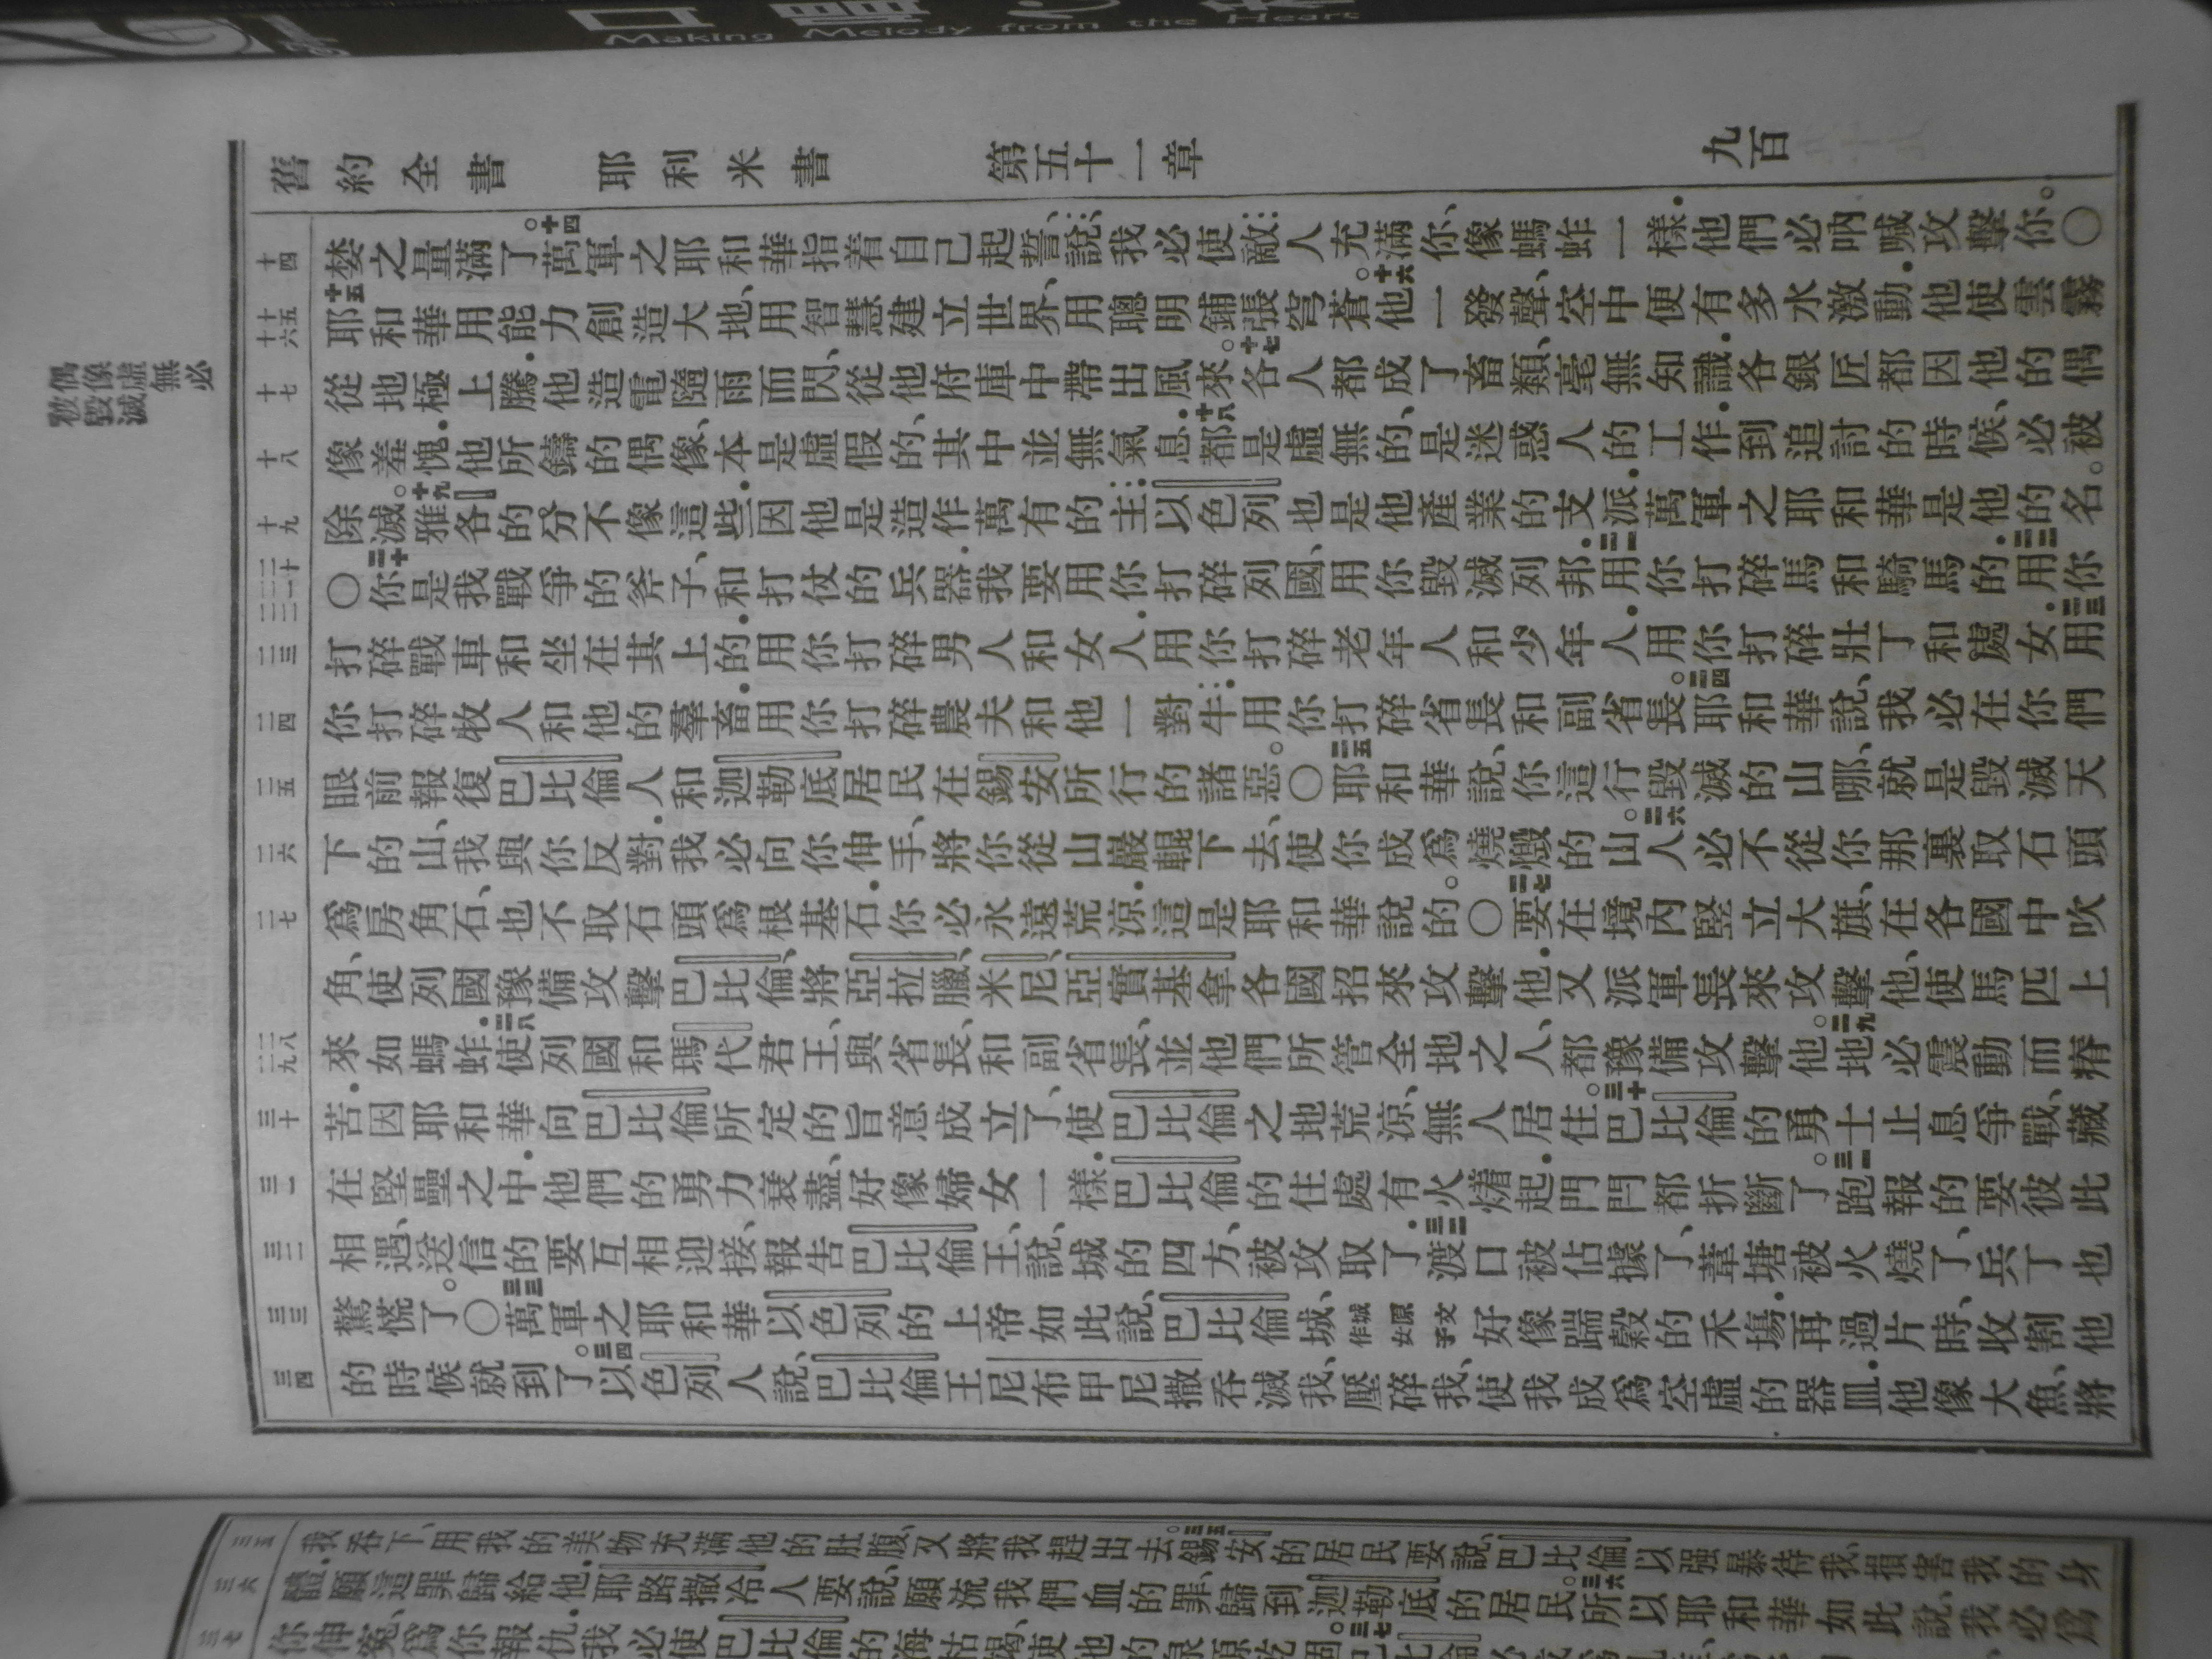 Making Melody from the Heart
舊約全書 耶利米書 第五十一章 九百
十四
十五
十六
十七
十八
十九
二十
二一
二二
二三
二四
二五
二六
二七
二八
二九
三十
三一
三二
三三
三四
偶像虛無必
被毀滅
婪之量滿了。十四萬軍之耶和華指着自己起誓、說、我必使敵人充滿你、像螞蚱一樣．他們必吶喊攻擊你。○
十五耶和華用能力創造大地、用智慧建立世界、用聰明鋪張穹蒼。十六他一發聲、空中便有多水激動．他使雲霧
從地極上騰．他造電隨雨而閃、從他府庫中帶出風來。十七各人都成了畜類、毫無知識．各銀匠都因他的偶
像羞愧．他所鑄的偶像、本是虛假的、其中並無氣息．十八都是虛無的、是迷惑人的工作．到追討的時候、必被
除滅。十九雅各的分不像這些．因他是造作萬有的主．以色列也是他產業的支派．萬軍之耶和華是他的名。
○二十你是我戰爭的斧子、和打仗的兵器．我要用你打碎列國、用你毀滅列邦．二一用你打碎馬和騎馬的．二二用你
打碎戰車和坐在其上的．用你打碎男人和女人．用你打碎老年人和少年人．用你打碎壯丁和處女．二三用
你打碎牧人和他的羣畜．用你打碎農夫和他一對牛．用你打碎省長和副省長。二四耶和華說、我必在你們
眼前報復巴比倫人和迦勒底居民在錫安所行的諸惡。○二五耶和華說、你這行毀滅的山哪、就是毀滅天
下的山、我與你反對．我必向你伸手、將你從山巖輥下去、使你成爲燒燬的山。二六人必不從你那裏取石頭
爲房角石、也不取石頭爲根基石．你必永遠荒涼．這是耶和華說的。○二七要在境內竪立大旗、在各國中吹
角、使列國豫備攻擊巴比倫、將亞拉臘、米尼、亞實基拿各國招來攻擊他．又派軍長來攻擊他、使馬匹上
來如螞蚱．二八使列國和瑪代君王、與省長、和副省長、並他們所管全地之人、都豫備攻擊他。二九地必震動而瘠
苦．因耶和華向巴比倫所定的旨意成立了、使巴比倫之地荒涼、無人居住。三十巴比倫的勇士止息爭戰、藏
在堅壘之中．他們的勇力衰盡、好像婦女一樣．巴比倫的住處有火燒着起．門閂都折斷了。三一跑報的要彼此
相遇、送信的要互相迎接、報告巴比倫王、說、城的四方、被攻取了．三二渡口被佔據了、葦塘被火燒了、兵丁也
驚慌了。○三三萬軍之耶和華以色列的上帝如此說、巴比倫城、城原文作女子好像踹穀的禾場．再過片時、收割他
的時候就到了。三四以色列人說、巴比倫王尼布甲尼撒吞滅我、壓碎我、使我成爲空虛的器皿．他像大魚、將
三五
三六
三七
我吞下、用我的美物充滿他的肚腹、又將我趕出去。三五錫安的居民要說、巴比倫以强暴待我、損害我的身
體．願這罪歸給他．耶路撒冷人要說、願流我們血的罪、歸到迦勒底的居民。三六所以耶和華如此說、我必爲
你伸冤、爲你報仇．我必使巴比倫的海枯竭、使他的